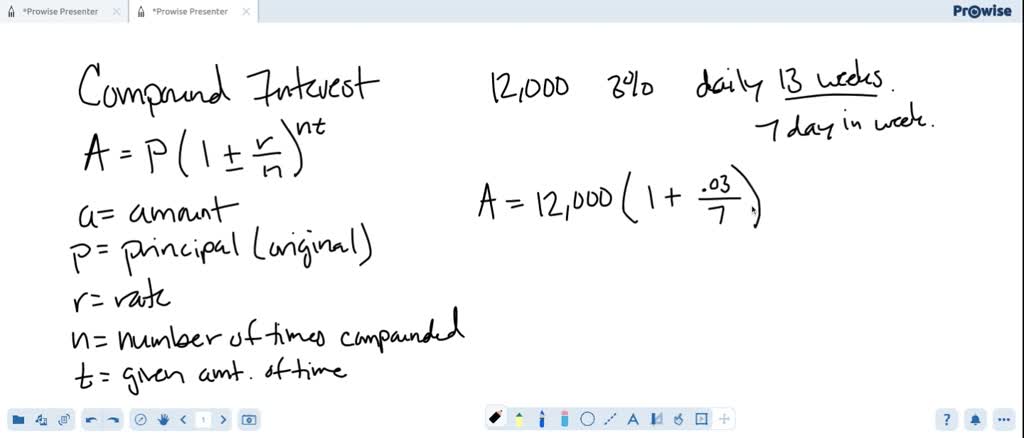 *Prowise Presenter
*Prowise Presenter
Prowise
Compound Interest
A = P(1 ± r/n)^nt
a = amount
p = principal (original)
r = rate
n = number of times compounded
t = given amt. of time
12,000 3% daily 13 weeks.
7 day in week.
A = 12,000 (1 + .03/7)
1
A
?